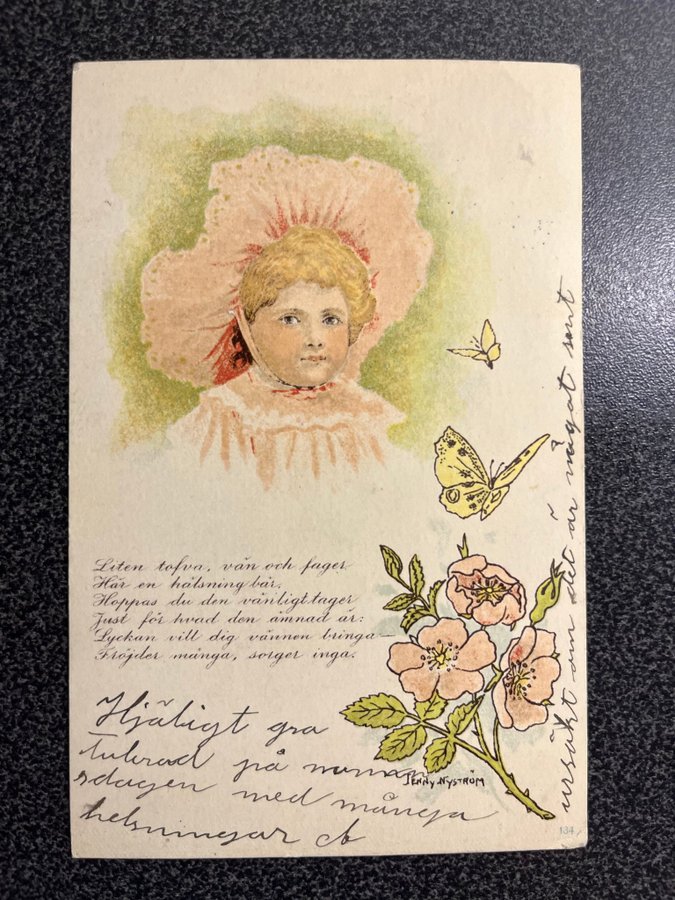 Liten tofva, vän och fager
Här en hälsning bär.
Hoppas du den vänligt tager
Just för hvad den ämnad är:
Lyckan vill dig vännen bringa—
Fröjder många, sorger inga.
Hjäligt gra
tulerad på namn
sdagen med många
helsningar
JENNY NYSTRÖM
134
ursäkt om det är något sent